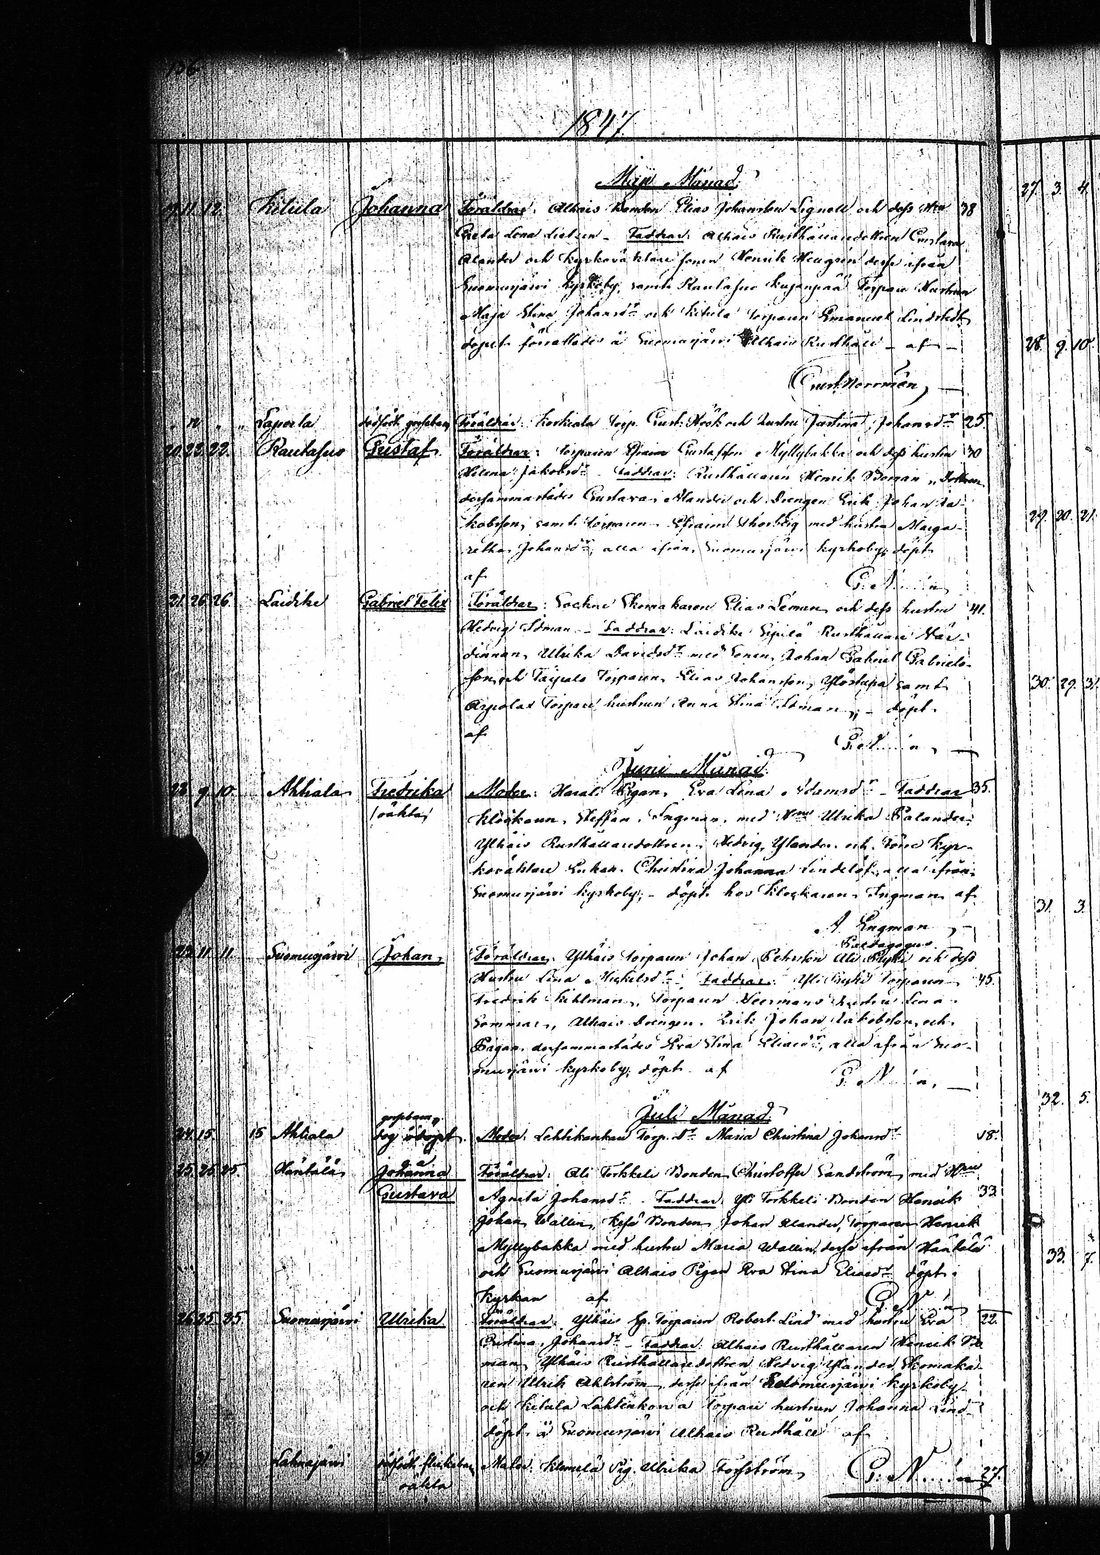 136.
1847
Maji Månad
19. 11. 12. Kitula Johanna Föräldrar: Alhais Bonden Elias Johansson Lignell och dess Hru 38
Greta Lena - Faddrar: Alhais Rusthållaredottren Gustava
Alander och Kyrkoväktare sonen Henrik desse ifrån
Suomusjärvi Kyrkoby, samt Rautasuo Torpare Hustrun
Maja Stina Johansdr och Kitula Torparen Emanuel Lindstedt
döpet förrättades å Suomusjärvi Alhais Rusthåll - af -
Gust. Norrmén,
" n " " Laperla dödfödt gossebarn Föräldrar: Koskiala Torp. Gust. Höök och hustru Justina Johansdr 25.
20. 22. 22. Rautasuo Gustaf Föräldrar: Torparen Efraim Gustafsson Myllybakka och dess hustru 40
Helena Jakobsdr - Faddrar: Rusthållaren Henrik Boman, Dottren
dersammastädes Gustava Alander och Drengen Erik Johan Ja-
kobsson, samt Torparen Efraim med hustru Marga-
retha Johansdr, alla ifrån Suomusjärvi Kyrkoby; döpt
af G. N......n
21. 26. 26. Laidike Gabriel Felix Föräldrar: Sockne Skomakaren Elias Leman och dess hustru 41.
Hedvig Idman - Faddrar: Laidike Sipilä Rusthållare Vär-
dinnan Ulrika Davidsdr med Sonen Johan Gabriel Gabriels-
son, och Taipale Torparen Elias Johansson, samt
Arpolas Torpare hustrun Anna Stina Idman; - döpt
af G. N......n, -
Juni Månad
22. 9. 10. Ahtiala Fredrika Moder: Pigan Eva Lena Adamsdr - Faddrar 35.
/oäkta/ Klockaren Steffan Ingman med Hru Ulrika Palander,
Ylhäis Rusthållaredottren Hedvig Ylander och Förre Kyr-
koväktare Enkan Christina Johanna Lindelöf, alla ifrån
Suomusjärvi kyrkoby; - döpt hos Klockaren Ingman af
A. Engman,
Paedagogus
23. 11. 11. Suomusjärvi Johan, Föräldrar: Ylhäis Torparen Johan Ali Pytti och dess
Hustru Lena Michelsdr - Faddrar: Yli Pytti Torparen 45.
Fredrik Kihlman, Torparen Lena
Sommar, Alhais Drengen Erik Johan Jakobsson, och
Pigan dersammastädes Eva Stina Eliaedr, alla ifrån Suo-
musjärvi kyrkoby; döpt af G. N......n, -
Juli Månad
24. 15. 15 Ahtiala gossebarn dog odöpt Moder Lehtikankan Torp. dr Maria Christina Johansdr 18.
25. 25 25 Häntälä Johanna Föräldrar: Ali Torkkeli Bonden Christoffer Sandström med Hru
Gustava Agneta Johansdr. Faddrar: Yli Torkkeli Bonden Henrik 33.
Johan Wallin, Bonden Johan Alander, Torparen Henrik
Myllybakka med hustru Maria Wallin, desse ifrån Häntälä
och Suomusjärvi Alhais Pigan Eva Stina Eliaedr; döpt i
Kyrkan af G. N......n
26. 25. 25 Suomusjärvi Ulrika Föräldrar: Ylhäis Torparen Robert Lind med hustru Eva 22.
Christina Johansdr - Faddrar: Alhais Rusthållaren Henrik Bo-
man, Ylhäis Rusthållaredottren Hedvig Ylander, Skomaka-
ren Ulrik Ahlström, desse ifrån Suomusjärvi kyrkoby
och Kitula Torpare hustrun Johanna Lind-
döpt å Suomusjärvi Alhais Rusthåll af
31 Lahnajärvi dödfödt flickebarn Moder: Pig. Ulrika Forsström G. N......n 27.
oäkta
27. 3. 4.
28. 9. 10.
29. 20. 21.
30. 29. 31.
31. 3.
32. 5.
33. 7.